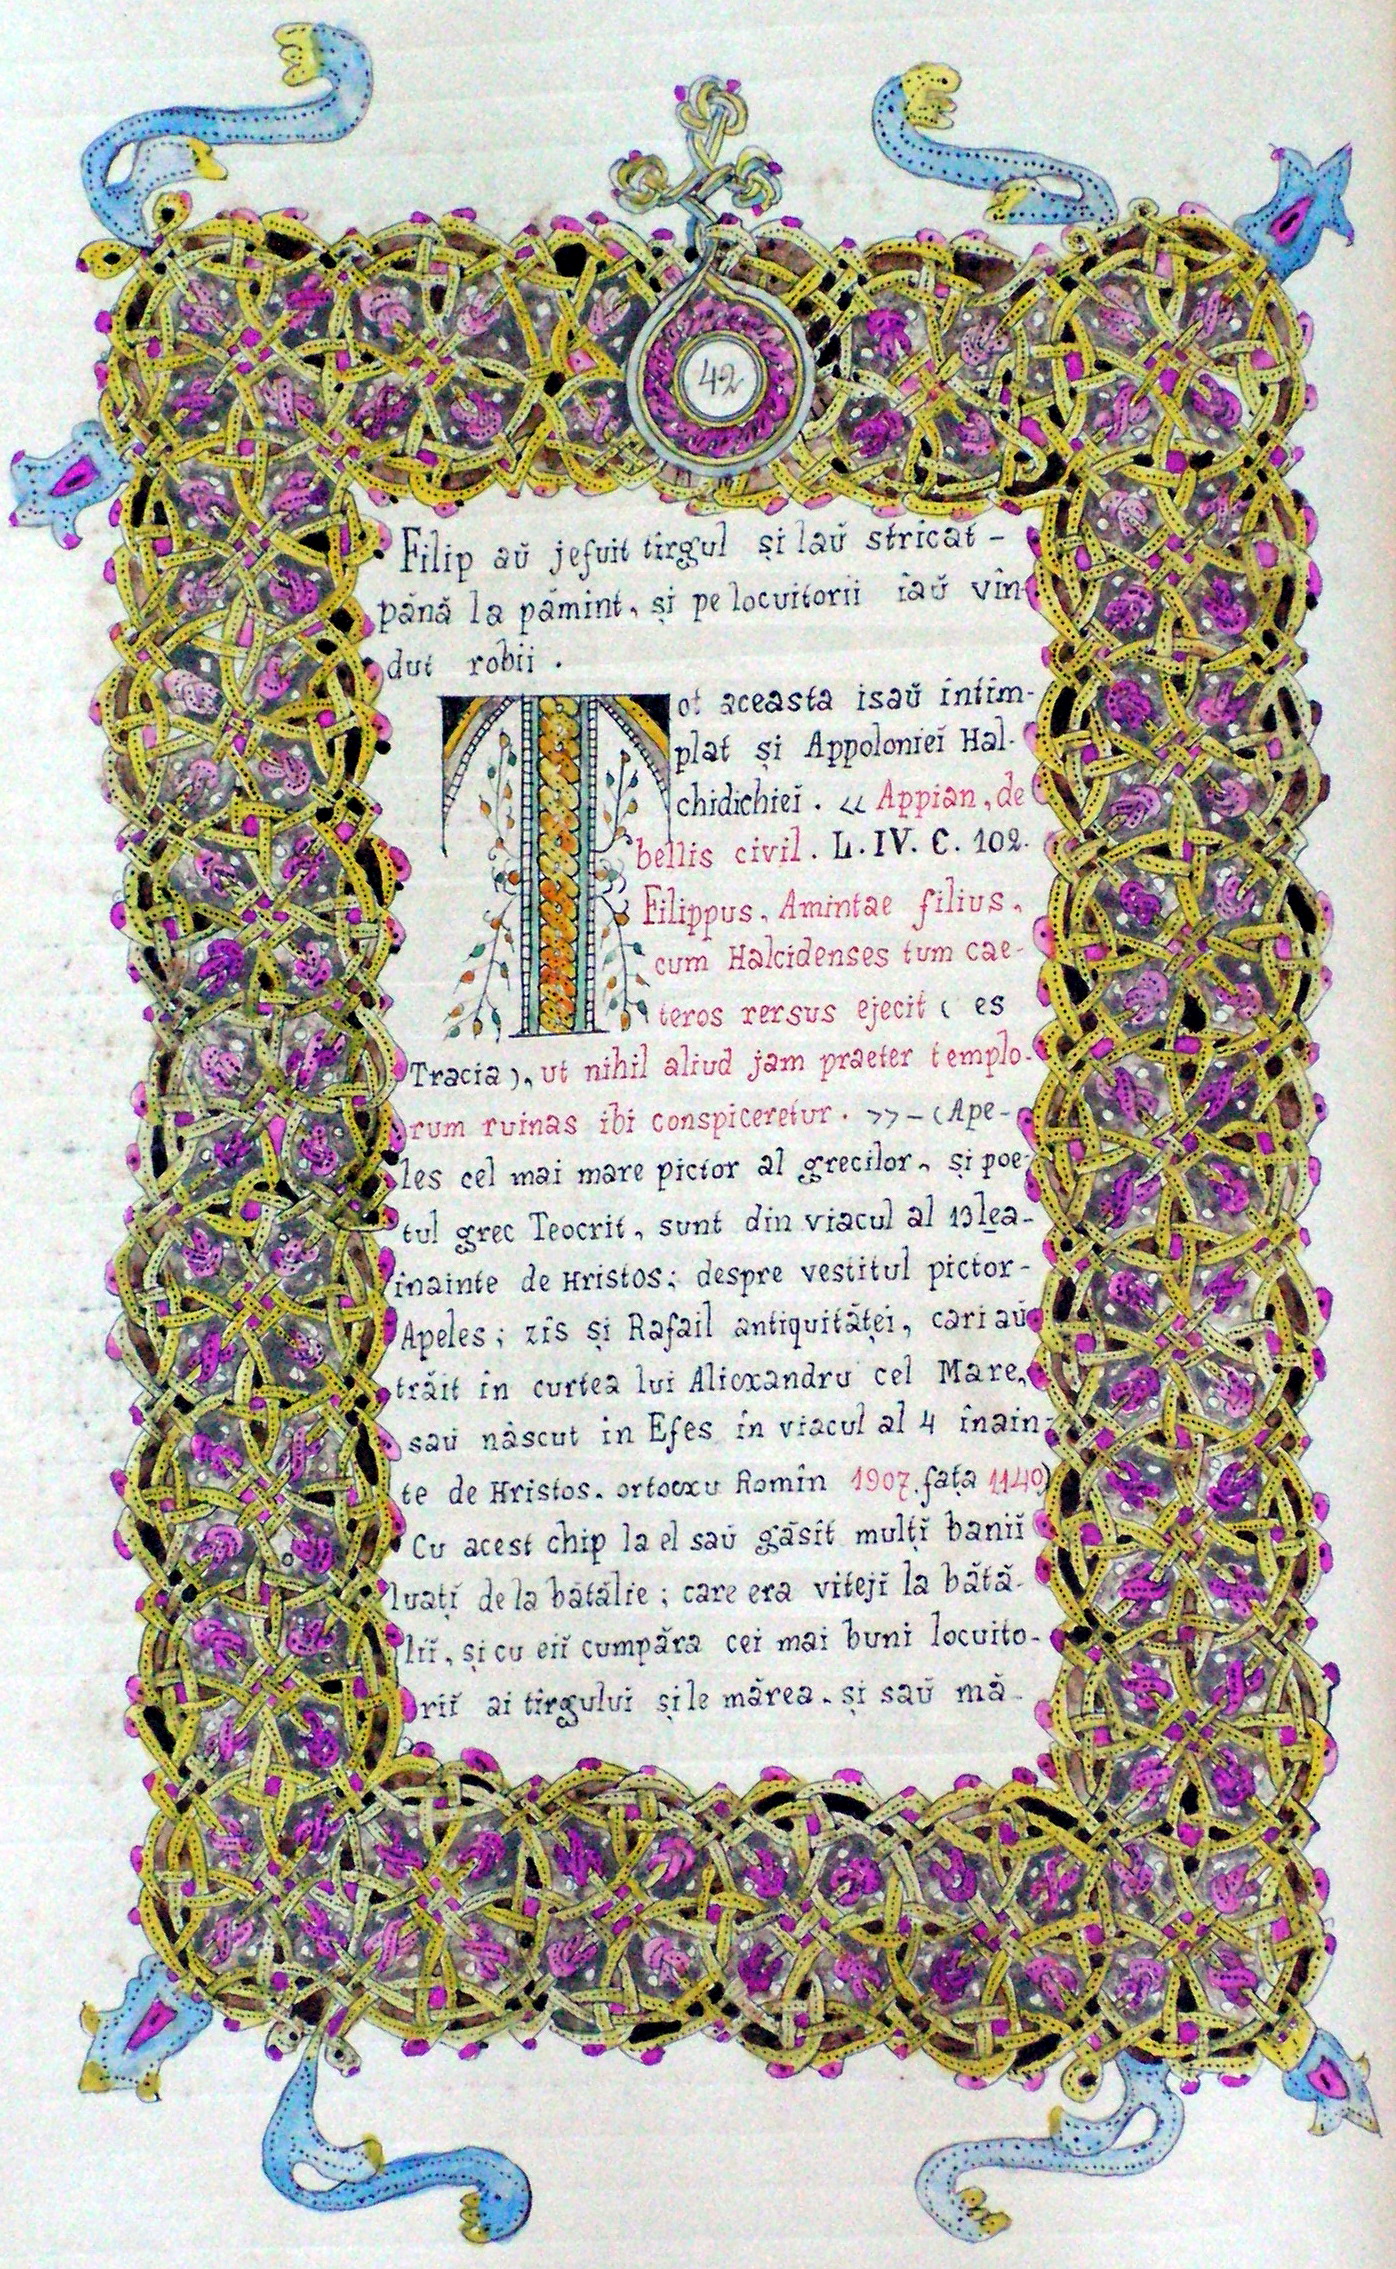 42
Filip aŭ jefuit tîrgul și laŭ stricat –
pănă la pămint, și pe locuitorii iaŭ vîn-
dut robii .
Tot aceasta isaŭ întîm-
plat și Appolonieĭ Hal-
chidichieĭ . « Appian, de
bellis civil. L. IV. C. 102.
Filippus, Amintae filius,
cum Halcidenses tum cae-
teros rersus ejecit ( es
Tracia ), ut nihil aliud jam praeter templo-
rum ruinas ibi conspiceretur. » – ( Ape-
les cel mai mare pictor al grecilor, și poe-
tul grec Teocrit, sunt din viacul al 13lea-
înainte de Hristos; despre vestitul pictor-
Apeles ; zîs și Rafail antiquităței, cari aŭ
trăit în curtea lui Alioxandru cel Mare,
saŭ născut in Efes în viacul al 4 înain-
te de Hristos. ortocxu Romîn 1907. fața 1140)
Cu acest chip la el saŭ găsît mulțĭ baniĭ
luațĭ de la bătălie ; care era vitejĭ la bătă-
liĭ, și cu eiĭ cumpăra cei mai buni locuito-
riĭ ai tîrgului șile mărea, și saŭ mă-